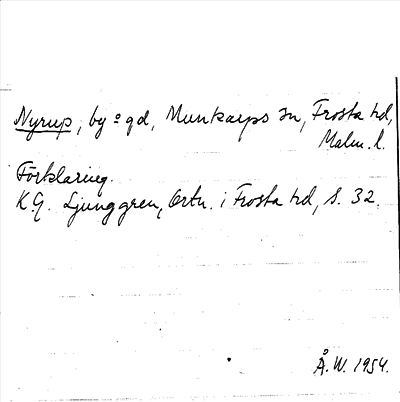 Nyrup, by o gd, Munkarps sn, Frosta hd,
Malm. l.
Förklaring.
K.G. Ljunggren, Ortn. i Frosta hd, s. 32.
Å.W. 1954.